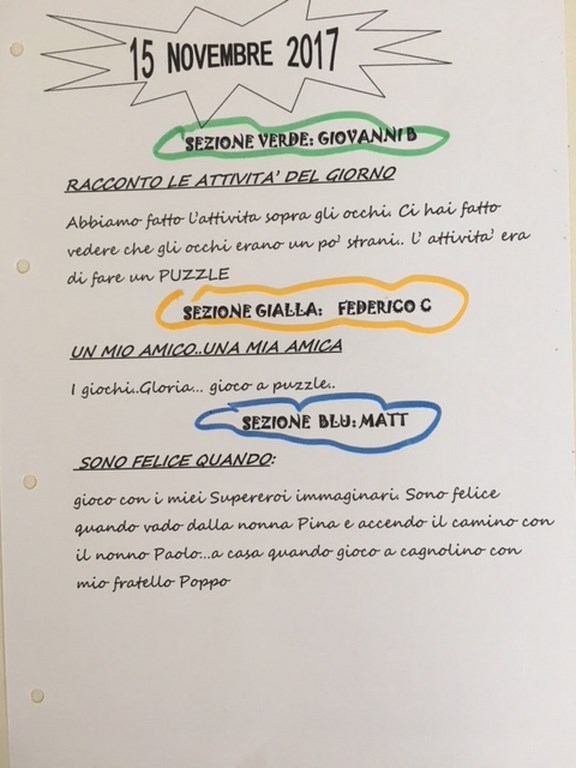 15 NOVEMBRE 2017
SEZIONE VERDE: GIOVANNI B
RACCONTO LE ATTIVITA' DEL GIORNO
Abbiamo fatto l'attivita sopra gli occhi. Ci hai fatto
vedere che gli occhi erano un po' strani.. L' attivita' era
di fare un PUZZLE
SEZIONE GIALLA: FEDERICO C
UN MIO AMICO..UNA MIA AMICA
I giochi..Gloria... gioco a puzzle..
SEZIONE BLU: MATT
SONO FELICE QUANDO:
gioco con i miei Supereroi immaginari. Sono felice
quando vado dalla nonna Pina e accendo il camino con
il nonno Paolo...a casa quando gioco a cagnolino con
mio fratello Poppo